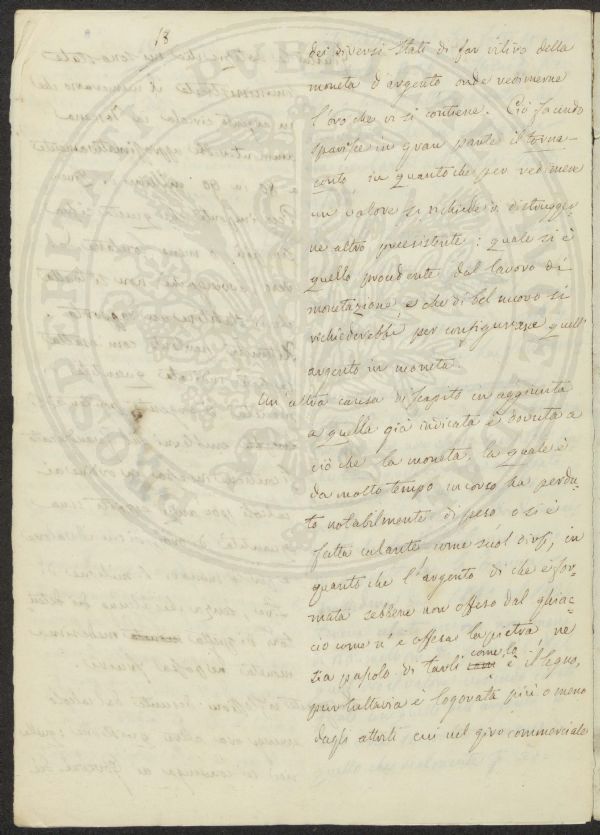 18
dei diversi Stati di far ritiro della
moneta d'argento, onde redimerne
l'oro che vi si contiene. Ciò facendo
sparisce in gran parte il torna-
conto, in quanto che per redimere
un valore si richiede di distrugger-
ne altro preesistente: quale si è
quello procedente dal lavoro di
monetazione e che di bel nuovo si
richiederebbe per configurare quell'
argento in moneta.
Un'altra causa di scapito in aggiunta
a quella già indicata è dovuta a
ciò che la moneta, la quale è
da molto tempo in corso ha perdu-
to notabilmente di peso o si è
fatta calante come suol dirsi, in
quanto che l'argento di che è for-
mata sebbene non offeso dal ghiac-
cio come n'è offesa la pietra ne
sia pascolo di tarli come lo è il legno,
pur tuttavia è logorata più o meno
dagli attriti cui nel giro commerciale